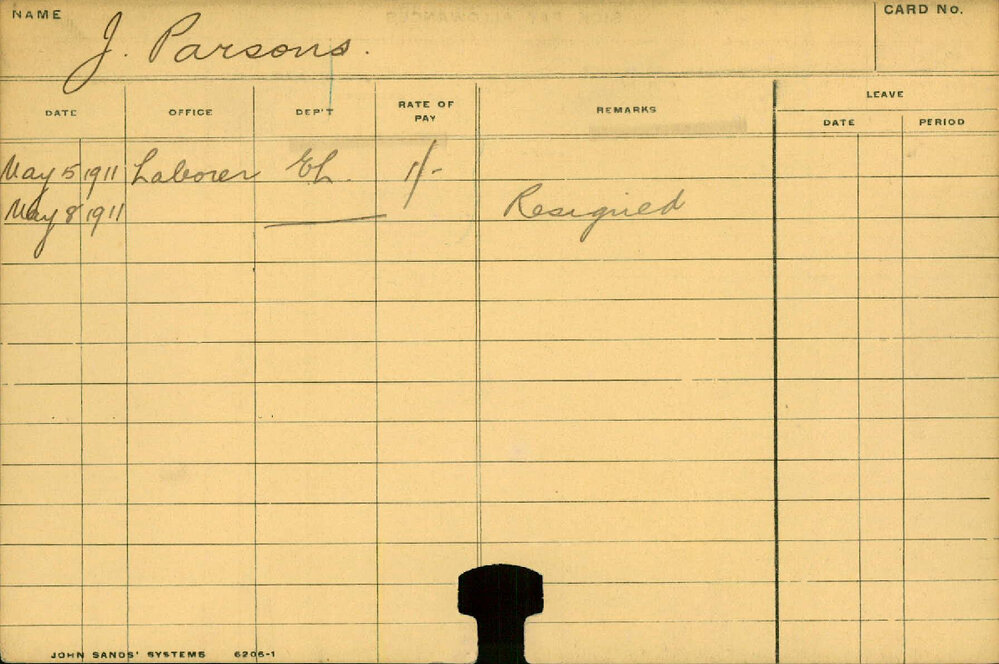 NAME J. Parsons. CARD No.
DATE OFFICE DEP'T RATE OF PAY REMARKS LEAVE
DATE PERIOD
May 5 1911 Laborer EL. 1/-
May 8 1911 Resigned
JOHN SANDS' SYSTEMS 6206-1